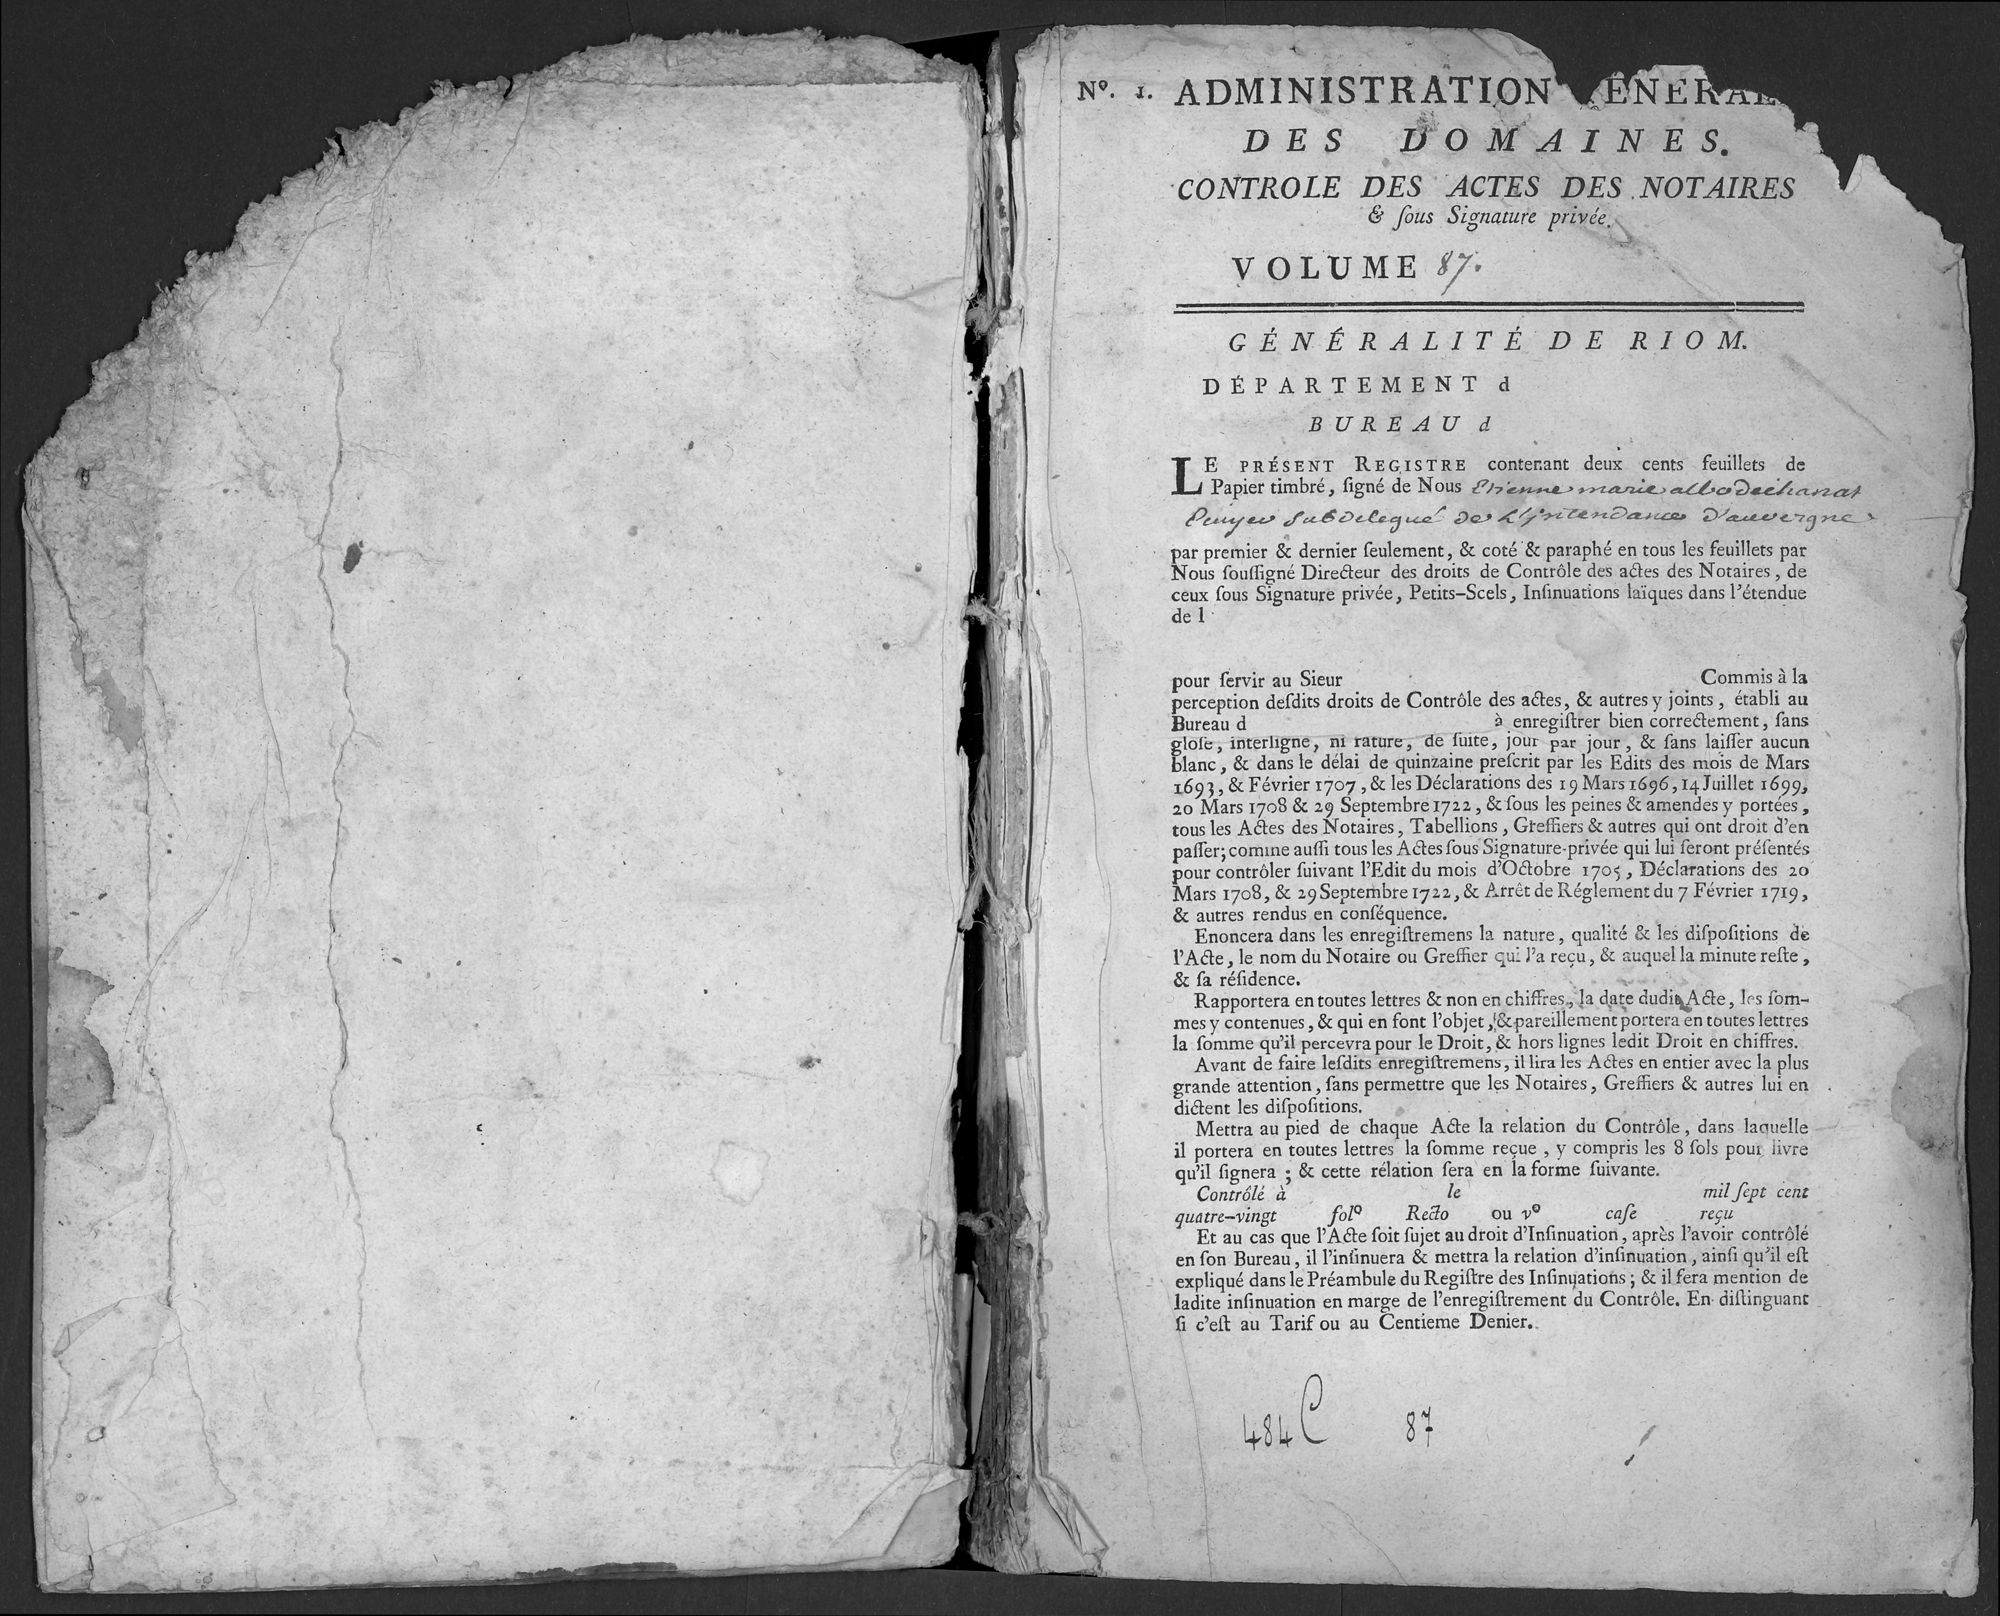 Nº. 1. ADMINISTRATION GENERALE
DES DOMAINES.
CONTROLE DES ACTES DES NOTAIRES
& ſous Signature privée.
VOLUME 87.
GÉNÉRALITÉ DE RIOM.
DÉPARTEMENT d
BUREAU d
LE PRÉSENT REGISTRE contenant deux cents feuillets de
Papier timbré, ſigné de Nous Etienne marie albo dechanat
Ecuyer Subdelegué de L'Intendance d'auvergne
par premier & dernier ſeulement, & coté & paraphé en tous les feuillets par
Nous ſouſſigné Directeur des droits de Contrôle des actes des Notaires, de
ceux ſous Signature privée, Petits-Scels, Inſinuations laïques dans l'étendue
de l
pour ſervir au Sieur Commis à la
perception deſdits droits de Contrôle des actes, & autres y joints, établi au
Bureau d à enregiſtrer bien correctement, ſans
gloſe, interligne, ni rature, de ſuite, jour par jour, & ſans laiſſer aucun
blanc, & dans le délai de quinzaine preſcrit par les Edits des mois de Mars
1693, & Février 1707, & les Déclarations des 19 Mars 1696, 14 Juillet 1699,
20 Mars 1708 & 29 Septembre 1722, & ſous les peines & amendes y portées,
tous les Actes des Notaires, Tabellions, Greffiers & autres qui ont droit d'en
paſſer; comme auſſi tous les Actes ſous Signature-privée qui lui ſeront préſentés
pour contrôler ſuivant l'Edit du mois d'Octobre 1705, Déclarations des 20
Mars 1708, & 29 Septembre 1722, & Arrêt de Réglement du 7 Février 1719,
& autres rendus en conſéquence.
Enoncera dans les enregiſtremens la nature, qualité & les diſpoſitions de
l'Acte, le nom du Notaire ou Greffier qui l'a reçu, & auquel la minute reſte,
& ſa réſidence.
Rapportera en toutes lettres & non en chiffres, la date dudit Acte, les ſom-
mes y contenues, & qui en font l'objet, & pareillement portera en toutes lettres
la ſomme qu'il percevra pour le Droit, & hors lignes ledit Droit en chiffres.
Avant de faire leſdits enregiſtremens, il lira les Actes en entier avec la plus
grande attention, ſans permettre que les Notaires, Greffiers & autres lui en
dictent les diſpoſitions.
Mettra au pied de chaque Acte la relation du Contrôle, dans laquelle
il portera en toutes lettres la ſomme reçue, y compris les 8 ſols pour livre
qu'il ſignera; & cette rélation ſera en la forme ſuivante.
Contrôlé à le mil ſept cent
quatre-vingt folº Recto ou vº caſe reçu
Et au cas que l'Acte ſoit ſujet au droit d'Inſinuation, après l'avoir contrôlé
en ſon Bureau, il l'inſinuera & mettra la relation d'inſinuation, ainſi qu'il eſt
expliqué dans le Préambule du Regiſtre des Inſinuations; & il fera mention de
ladite inſinuation en marge de l'enregiſtrement du Contrôle. En diſtinguant
ſi c'eſt au Tarif ou au Centieme Denier.
484 C 87